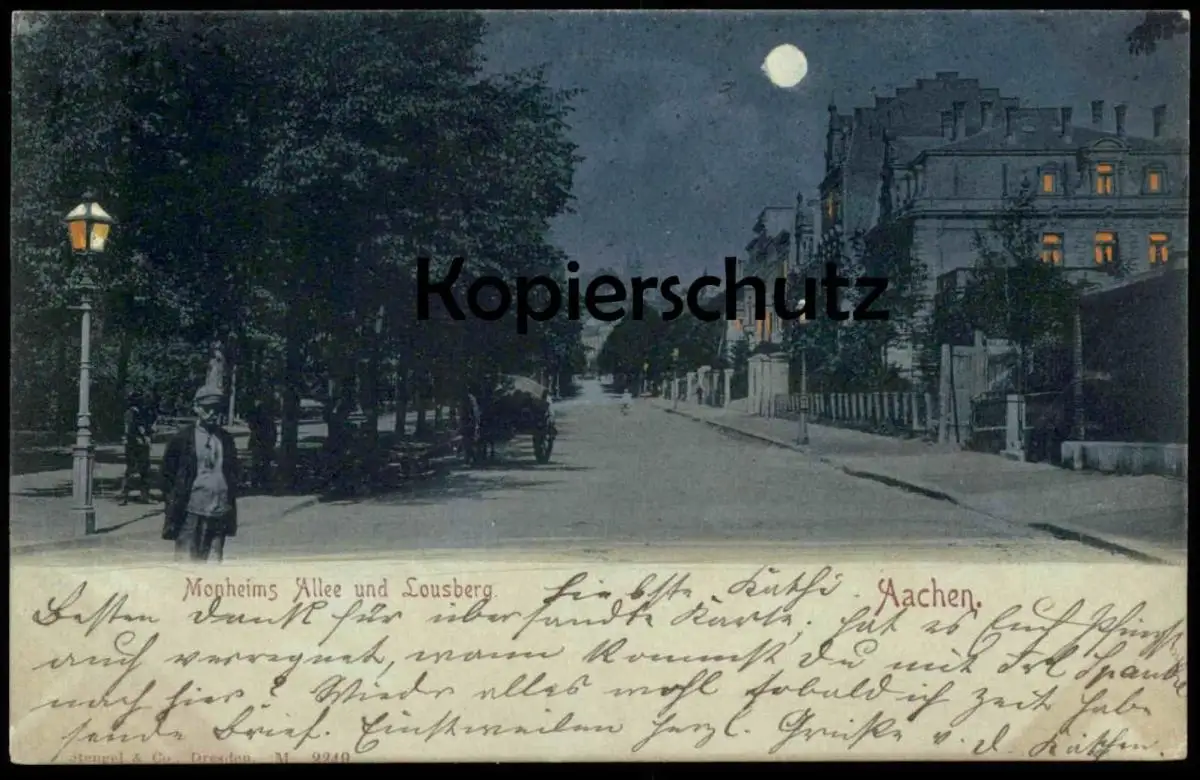 Kopierschutz
Monheims Allee und Lousberg.
Aachen.
Liebste Käthi.
Besten Dank für übersandte Karte, hat es Euch Pfingst
auch verregnet, wann kommst Du mit Frl
nach hier? Wieder alles wohl sobald ich Zeit habe
sende Brief. Einstweilen herzl. Grüße v. d. Käthen.
Stengel & Co., Dresden. M. 2249